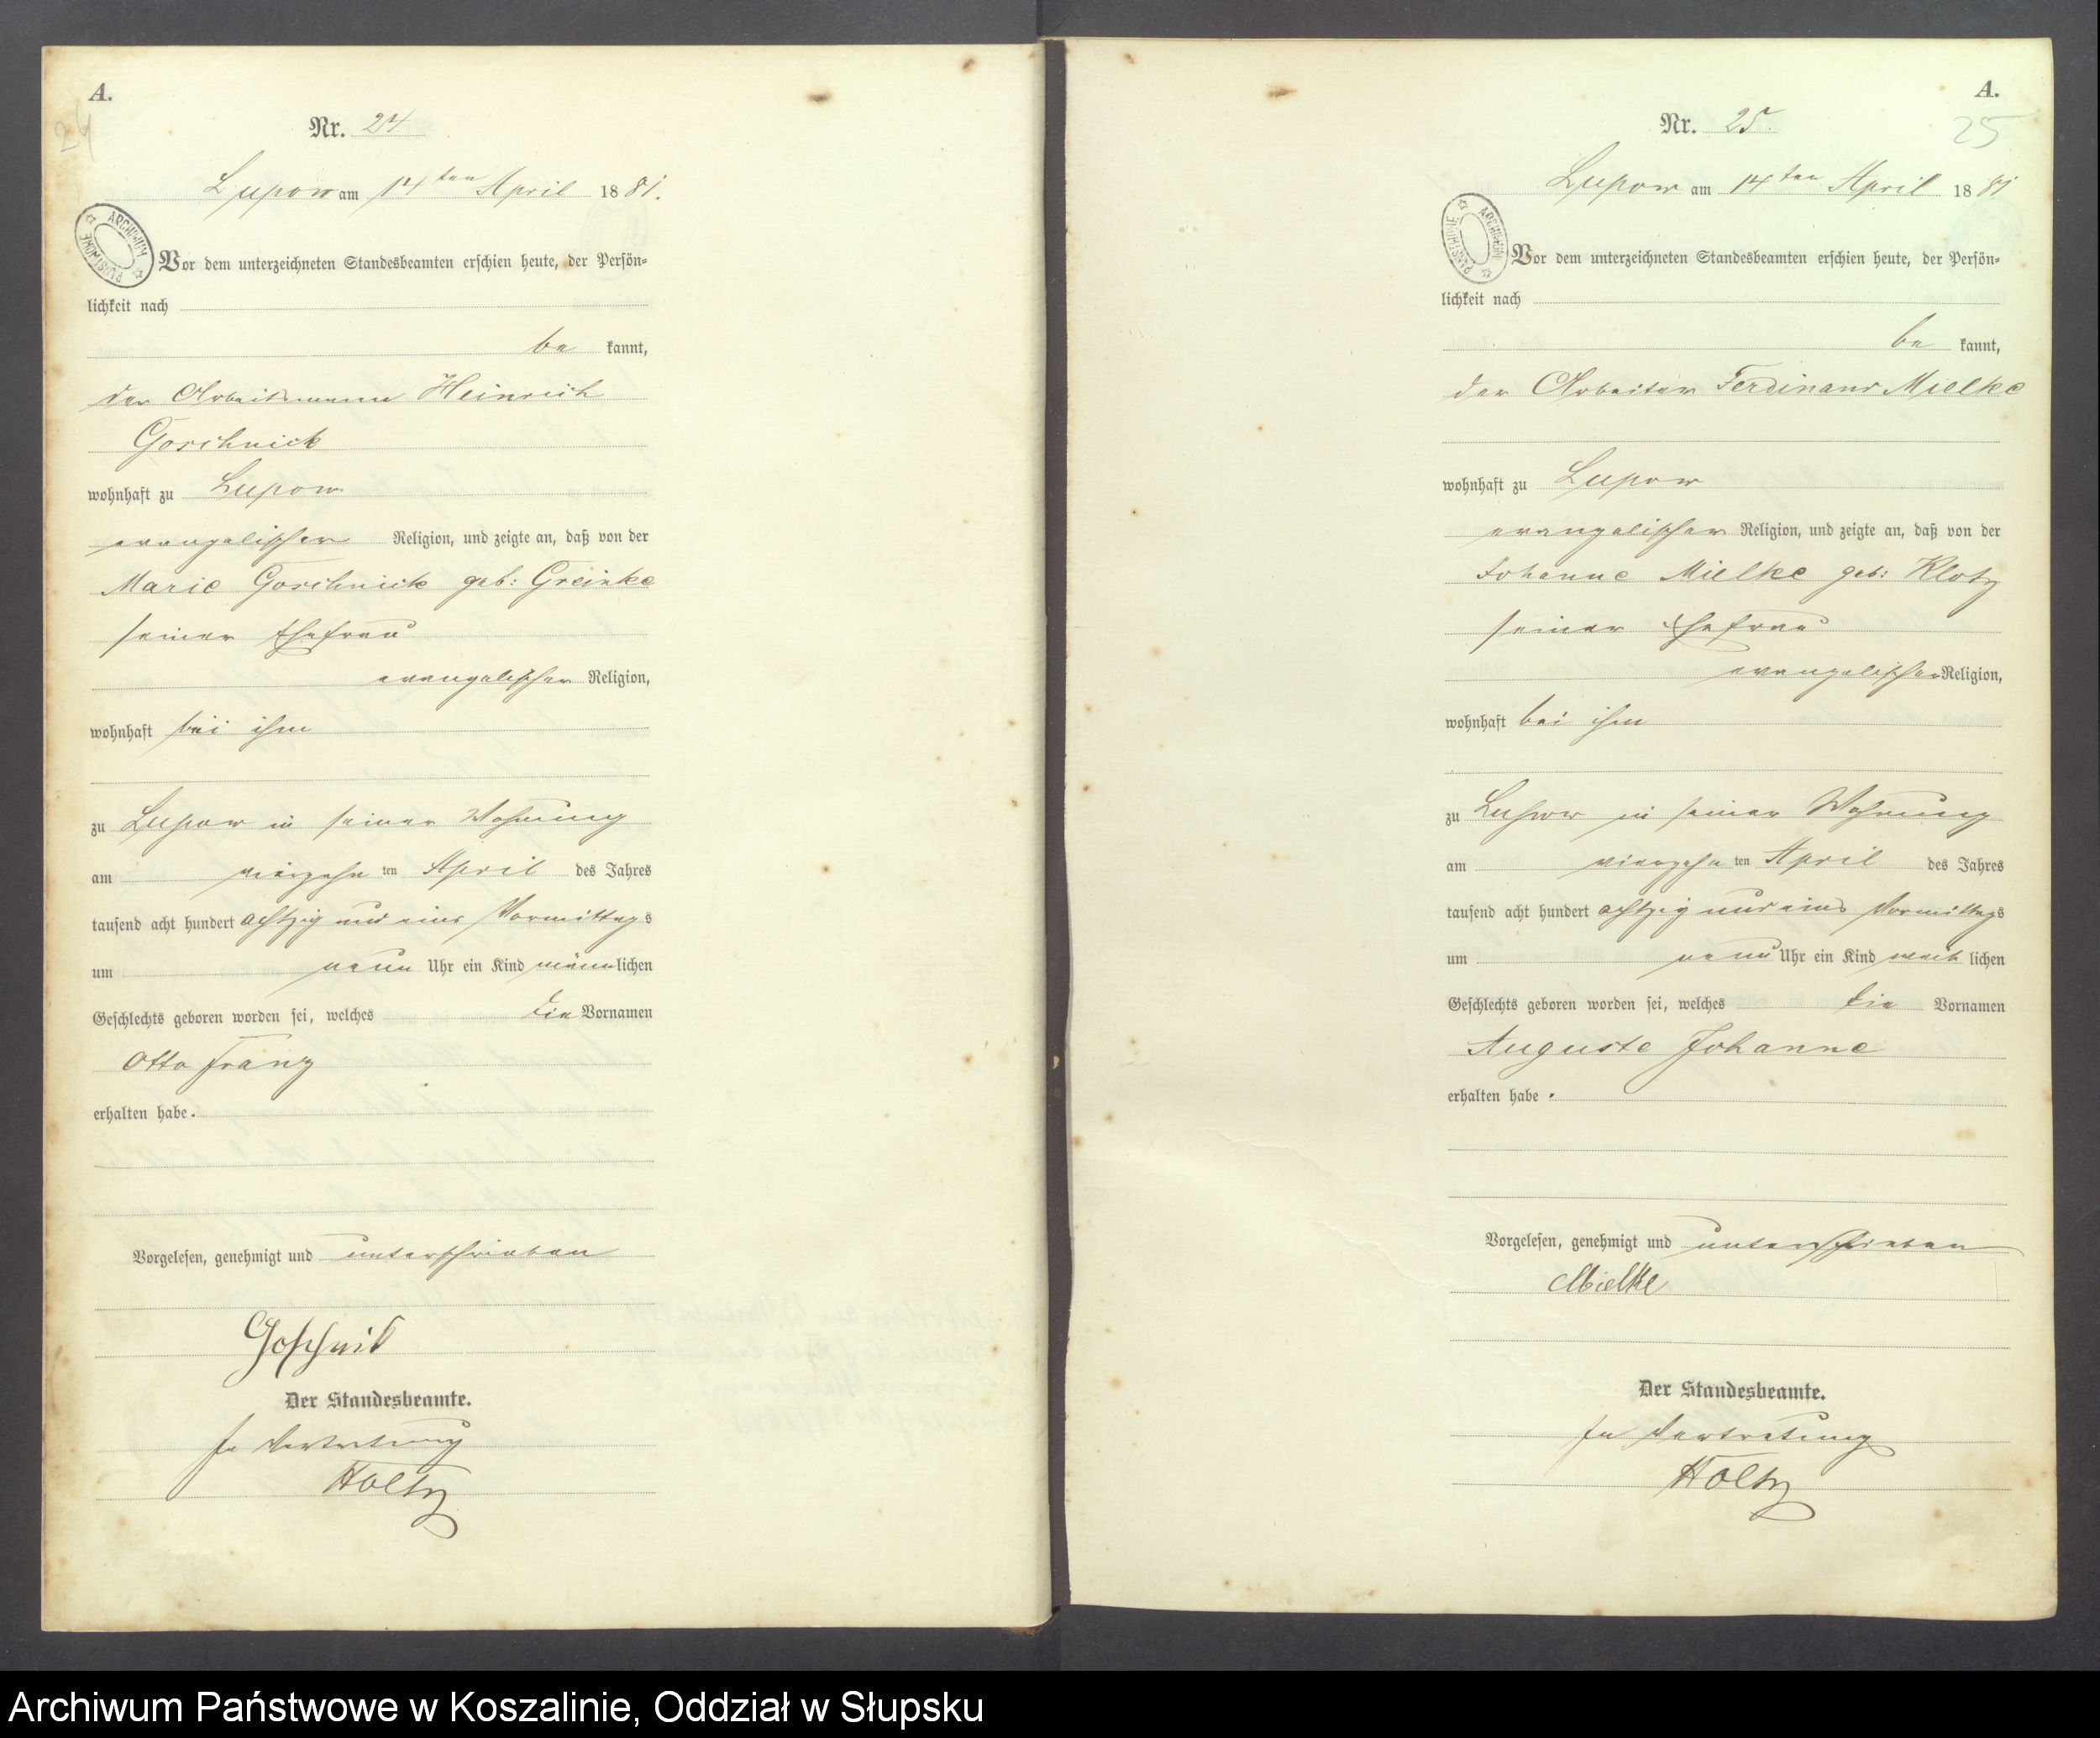 A.
24
Nr. 24
Lupow am 14ten April 1881.
ARCHIWUM PAŃSTWOWE
Vor dem unterzeichneten Standesbeamten erschien heute, der Persön-
lichkeit nach
be kannt,
der Arbeitsmann Heinrich
Goschnick
wohnhaft zu Lupow
evangelischer Religion, und zeigte an, daß von der
Marie Goschnick geb: Greinke
seiner Ehefrau
evangelischer Religion,
wohnhaft bei ihm
zu Lupow in seiner Wohnung
am vierzehn ten April des Jahres
tausend acht hundert achtzig und eins Vormittags
um neun Uhr ein Kind männlichen
Geschlechts geboren worden sei, welches die Vornamen
Otto Franz
erhalten habe.
Vorgelesen, genehmigt und unterschrieben
Goschnik
Der Standesbeamte.
In Vertretung
Holtz
A.
25
Nr. 25.
Lupow am 14ten April 1881
ARCHIWUM PAŃSTWOWE
Vor dem unterzeichneten Standesbeamten erschien heute, der Persön-
lichkeit nach
be kannt,
der Arbeiter Ferdinand Mielke
wohnhaft zu Lupow
evangelischer Religion, und zeigte an, daß von der
Johanne Mielke geb: Klotz
seiner Ehefrau
evangelischer Religion,
wohnhaft bei ihm
zu Lupow in seiner Wohnung
am vierzehn ten April des Jahres
tausend acht hundert achtzig und eins Vormittags
um neun Uhr ein Kind weib lichen
Geschlechts geboren worden sei, welches die Vornamen
Auguste Johanne
erhalten habe.
Vorgelesen, genehmigt und unterschrieben
Mielke
Der Standesbeamte.
In Vertretung
Holtz
Archiwum Państwowe w Koszalinie, Oddział w Słupsku